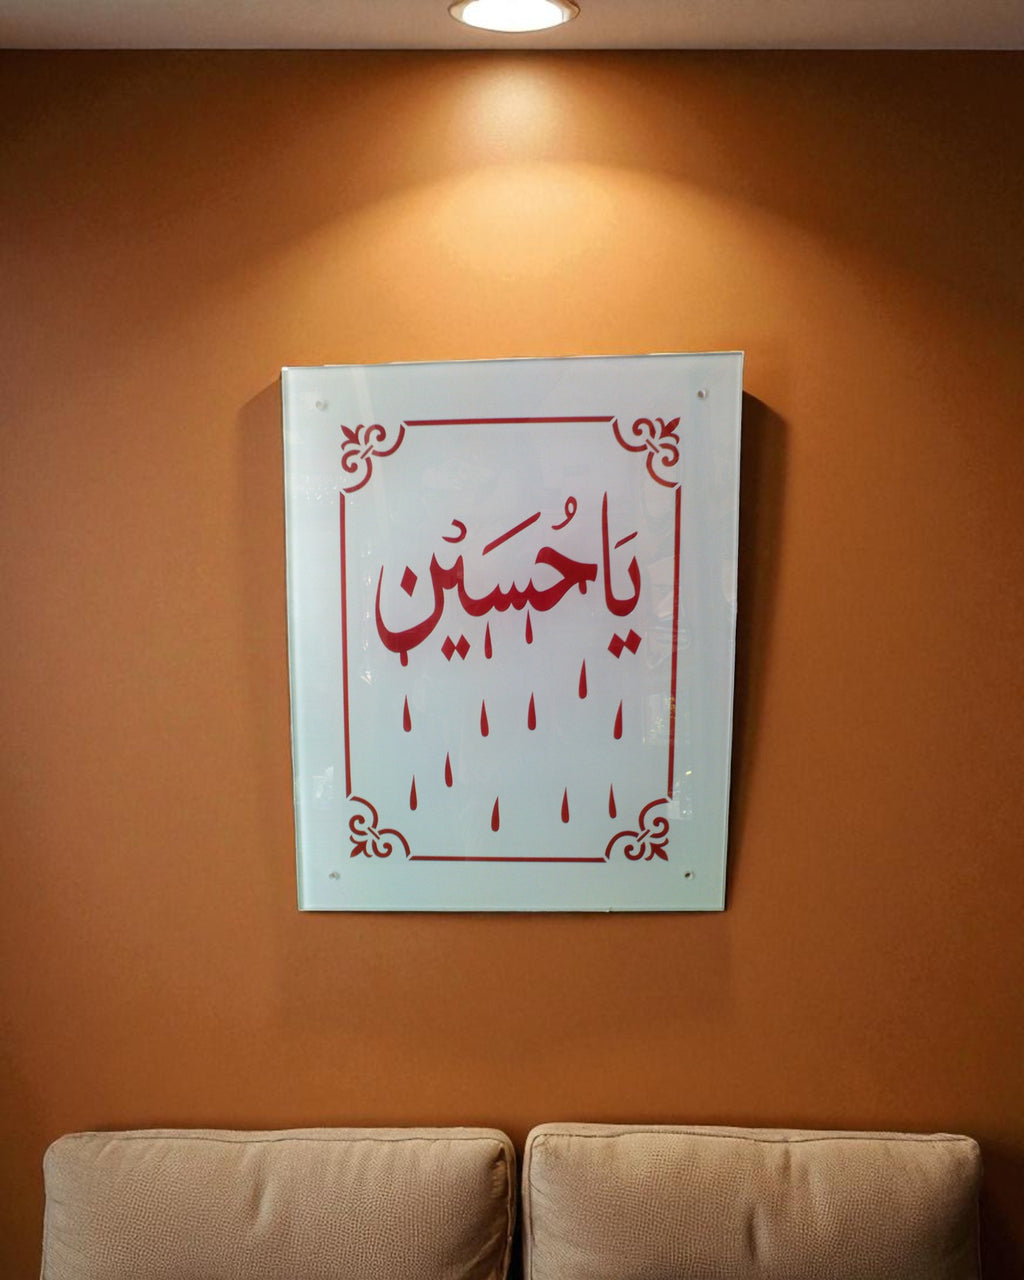 يَا حُسَيْن